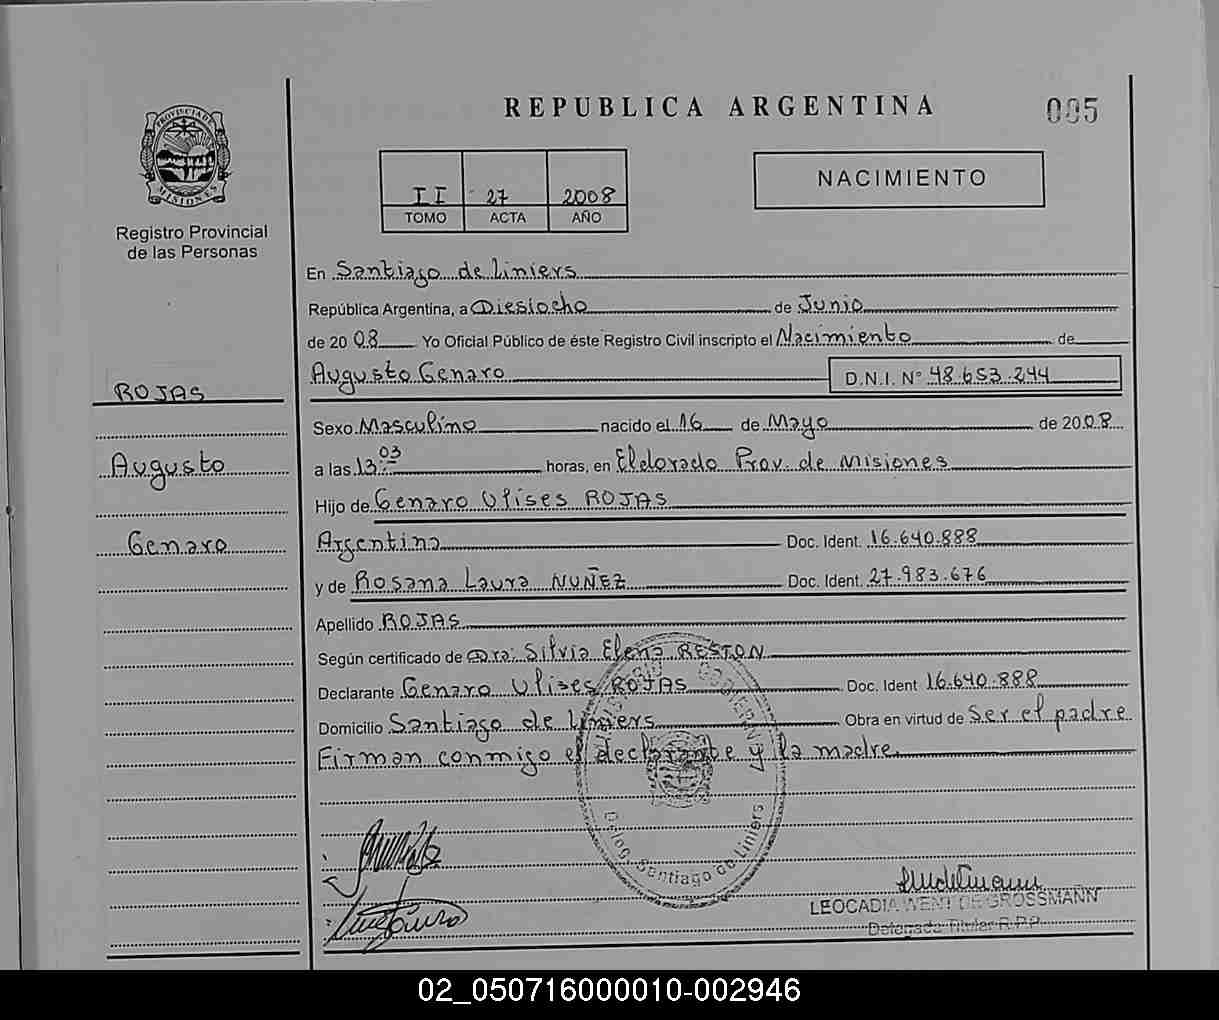 REPUBLICA ARGENTINA
005
PROVINCIA DE MISIONES
Registro Provincial
de las Personas
II 27 2008
TOMO ACTA AÑO
NACIMIENTO
En Santiago de Liniers
República Argentina, a Diesiocho de Junio
de 20 08 Yo Oficial Público de éste Registro Civil inscripto el Nacimiento de
Augusto Genaro D.N.I. N° 48.653.244
ROJAS
Augusto
Genaro
Sexo Masculino nacido el 16 de Mayo de 2008
a las 13:03 horas, en Eldorado Prov. de Misiones
Hijo de Genaro Ulises ROJAS
Argentina Doc. Ident. 16.640.888
y de Rosana Laura NUÑEZ Doc. Ident. 27.983.676
Apellido ROJAS
Según certificado de Dra: Silvia Elena RESTON
Declarante Genaro Ulises ROJAS Doc. Ident 16.640.888
Domicilio Santiago de Liniers Obra en virtud de Ser el padre
Firman conmigo el declarante y la madre.
Deleg. Santiago de Liniers
LEOCADIA WENT DE GROSSMANN
Delegada Titular R.P.P.
02_050716000010-002946